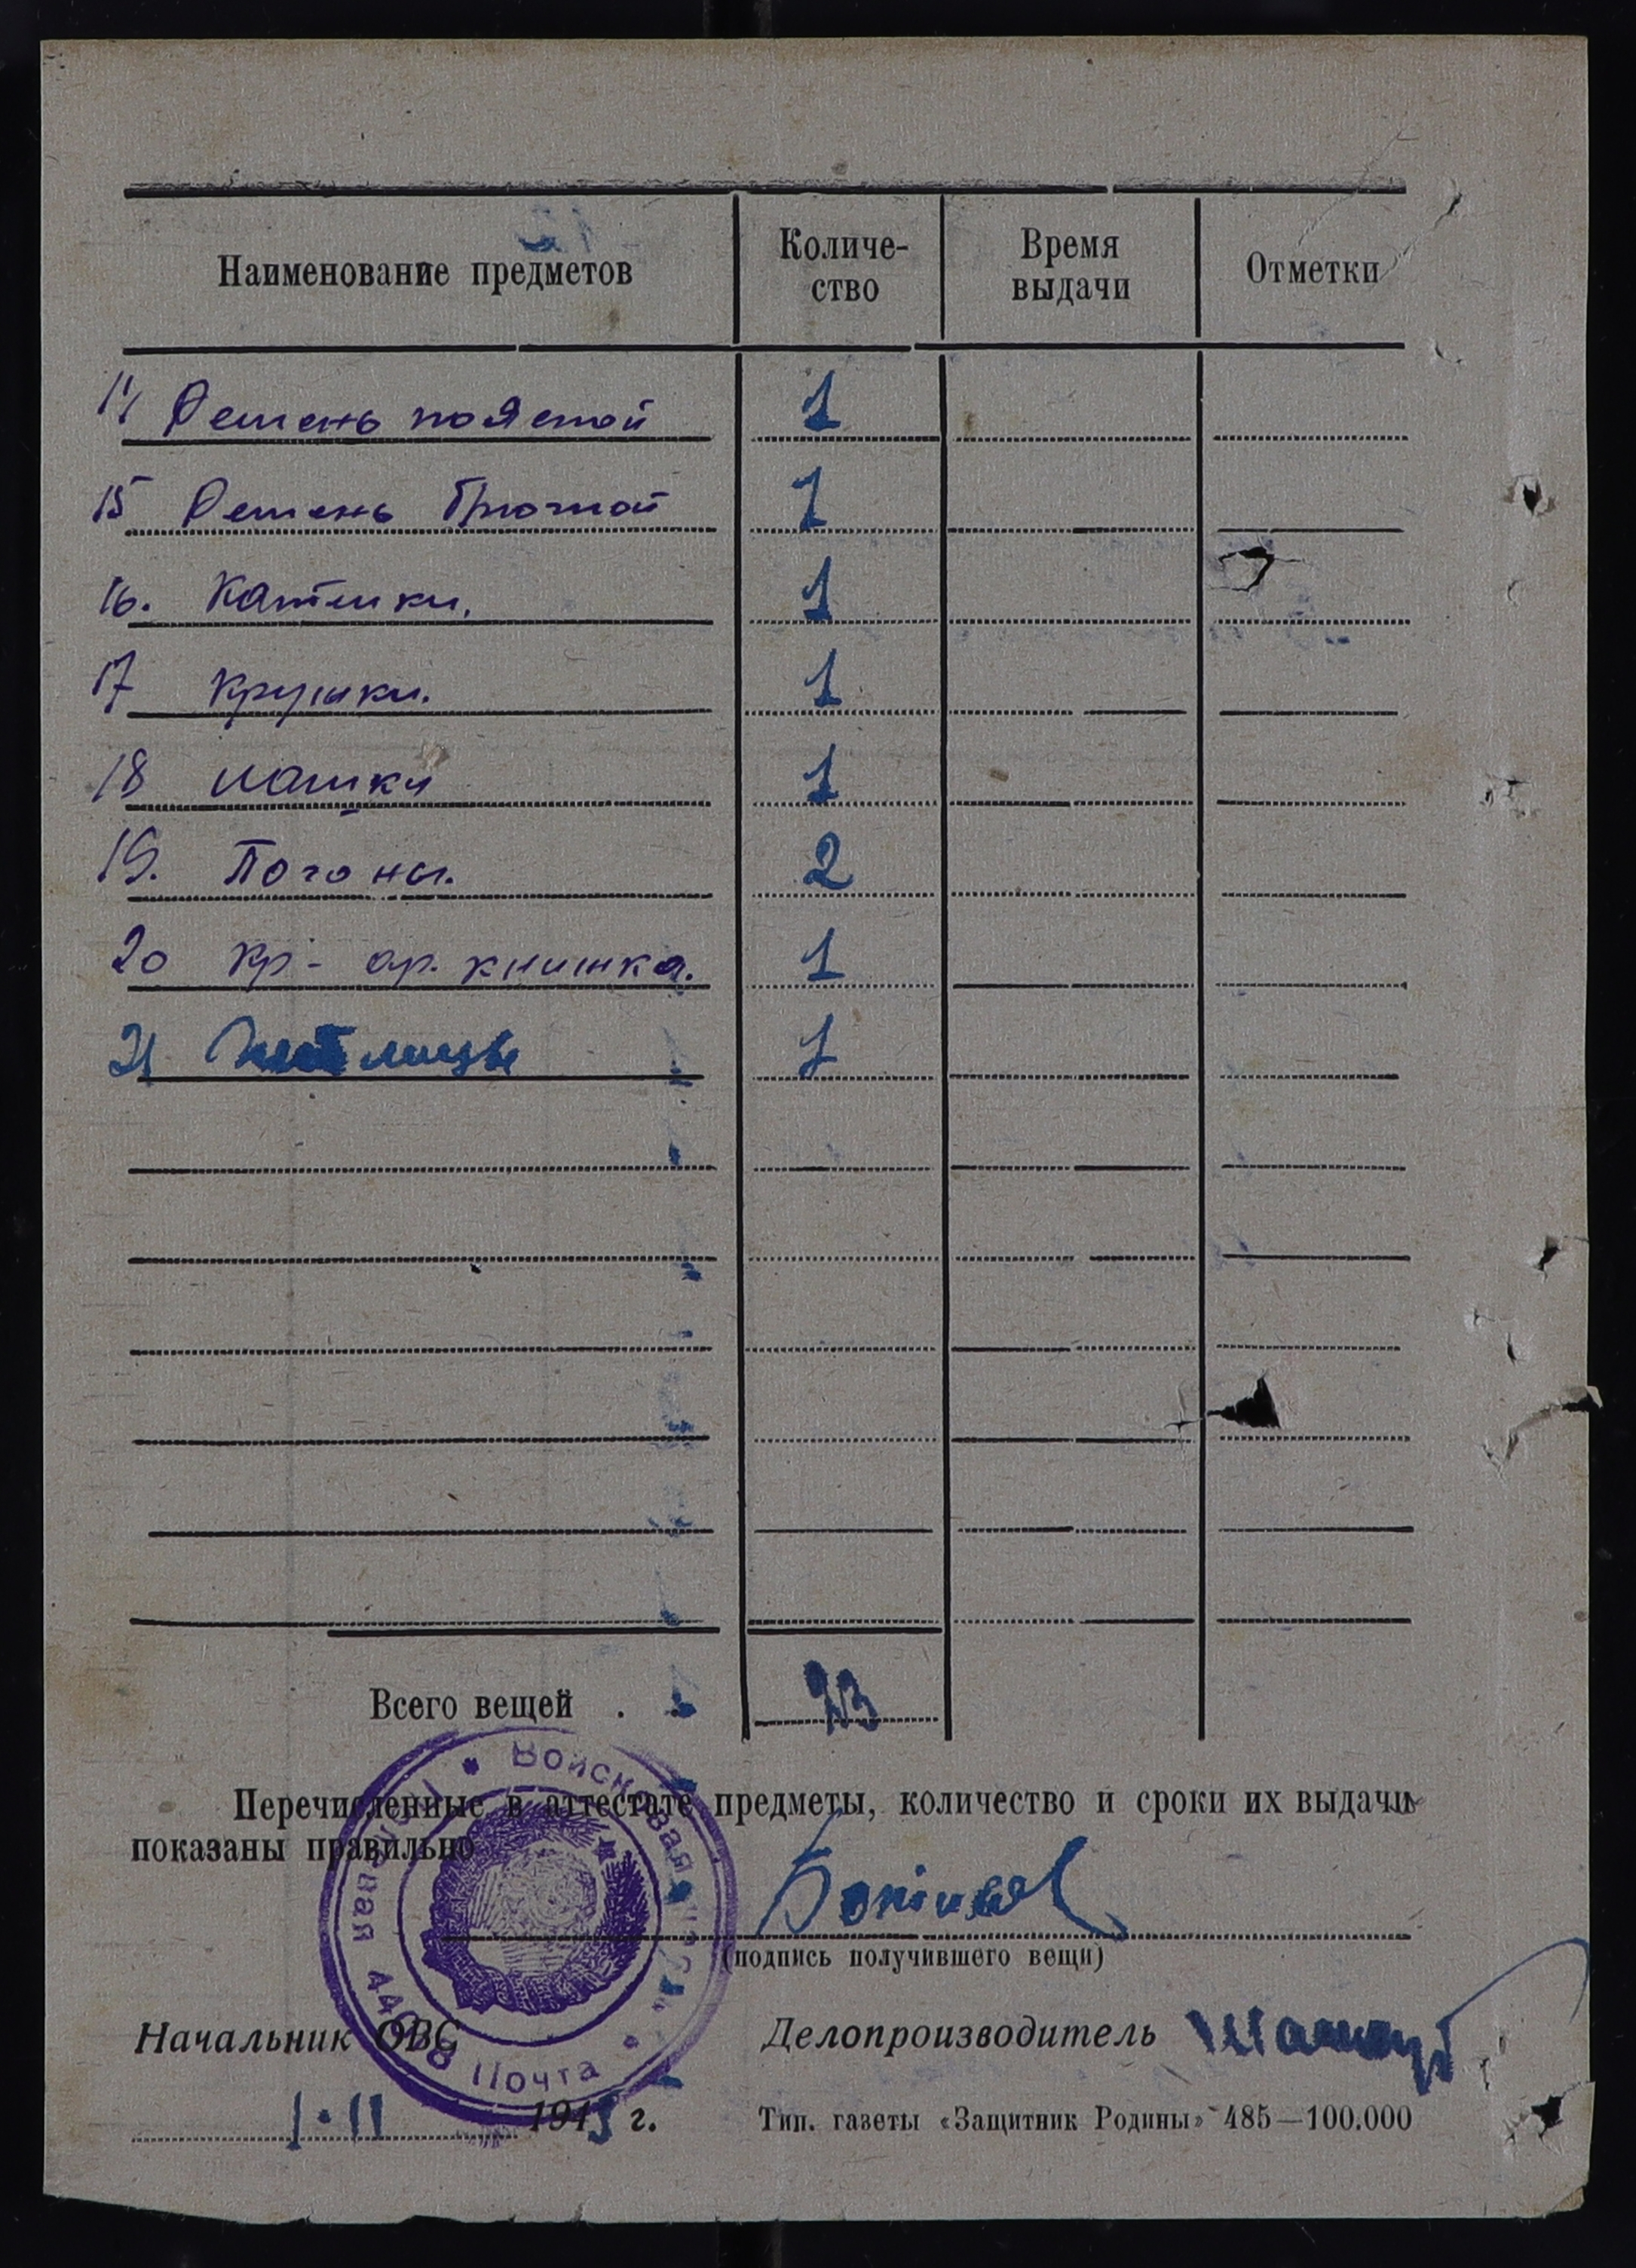 Наименование предметов Количе- Время Отметки
ство выдачи
14 Ремень поясной 1
15 Ремень брючной 1
16. Кателки. 1
17 Кружки. 1
18 1
19. Погоны. 2
20 Кр-ар. книжка. 1
21 1
Всего вещей . 23
Перечисленные в аттестате предметы, количество и сроки их выдачи
показаны правильно
(подпись получившего вещи)
Войсковая часть
Полевая Почта
Начальник ОВС Делопроизводитель
1·11 1945 г. Тип. газеты «Защитник Родины» 485—100.000